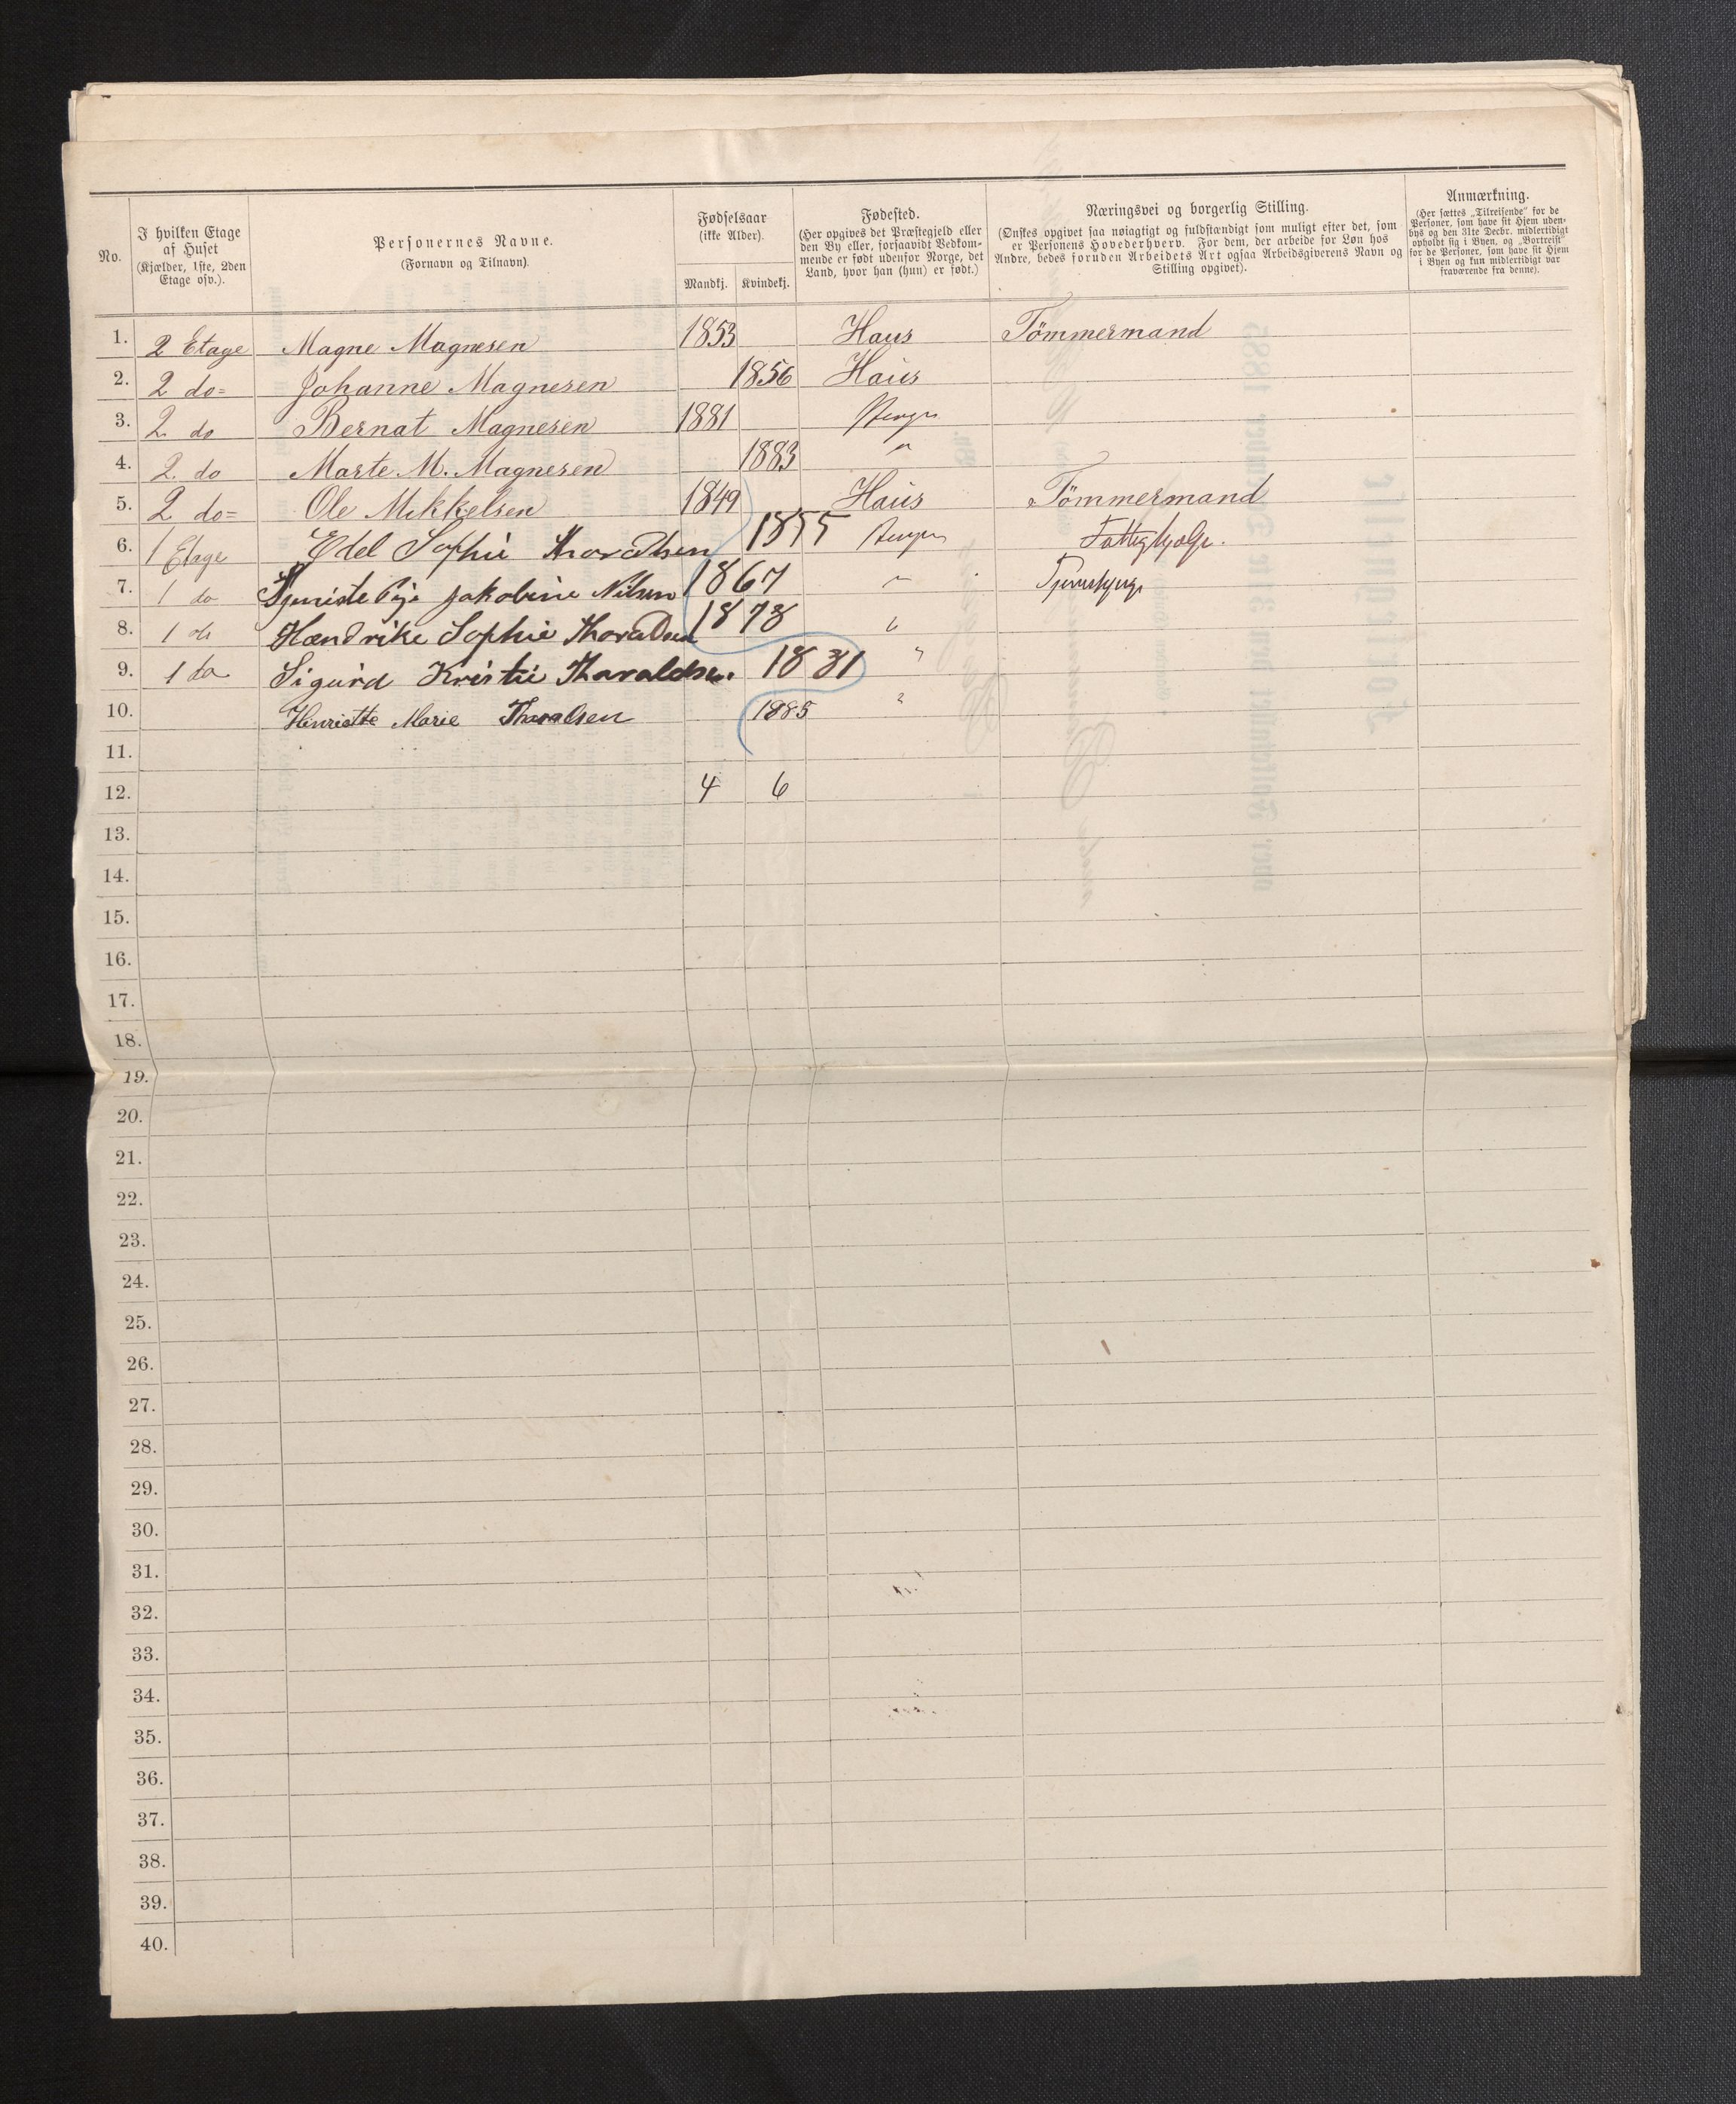 No.
I hvilken Etage af Huset (Kjælder, 1ste, 2den Etage osv.).
Personernes Navne. (Fornavn og Tilnavn).
Fødselsaar (ikke Alder).
Mandkj. Kvindekj.
Fødested. (Her opgives det Præstegjeld eller den By eller, forsaavidt Vedkommende er født udenfor Norge, det Land, hvor han (hun) er født.)
Næringsvei og borgerlig Stilling. (Ønskes opgivet saa nøiagtigt og fuldstændigt som muligt efter det, som er Personens Hovederhverv. For dem, der arbeide for Løn hos Andre, bedes foruden Arbeidets Art ogsaa Arbeidsgiverens Navn og Stilling opgivet).
Anmærkning. (Her sættes „Tilreisende“ for de Personer, som have sit Hjem udenbys og den 31te Decbr. midlertidigt opholdt sig i Byen, og „Bortreist“ for de Personer, som have sit Hjem i Byen og kun midlertidigt var fraværende fra denne).
1. 2 Etage Magne Magnesen 1853 Haus Tömmermand
2. 2 do= Johanne Magnesen 1856 Haus
3. 2 do Bernat Magnesen 1881 Bergen
4. 2 do Marte M. Magnesen 1883 "
5. 2 do= Ole Mikkelsen 1849 Haus Tömmermand
6. 1 Etage Edel Sophie Thoraldsen 1855 Bergen Fattighjælp.
7. 1 do Jakobine Nilsen 1867 "
8. 1 do Hændrike Sophie 1878 "
9. 1 do Sigurd Kristie Tharaldsen. 1881 "
10. Henriette Marie Tharalsen 1885 "
11.
12. 4 6
13.
14.
15.
16.
17.
18.
19.
20.
21.
22.
23.
24.
25.
26.
27.
28.
29.
30.
31.
32.
33.
34.
35.
36.
37.
38.
39.
40.